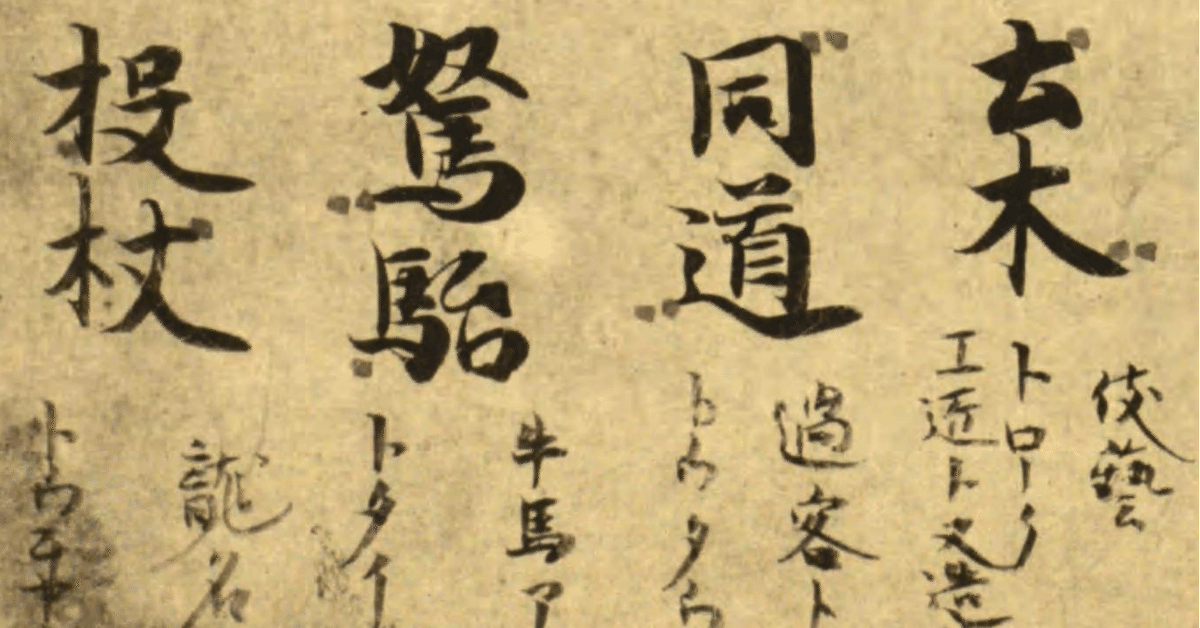 土木
伎藝
工匠ト又造
同道
過客ト
トウタウ
駑駘
牛馬
トタイ
投杖
龍名
トウチヤ